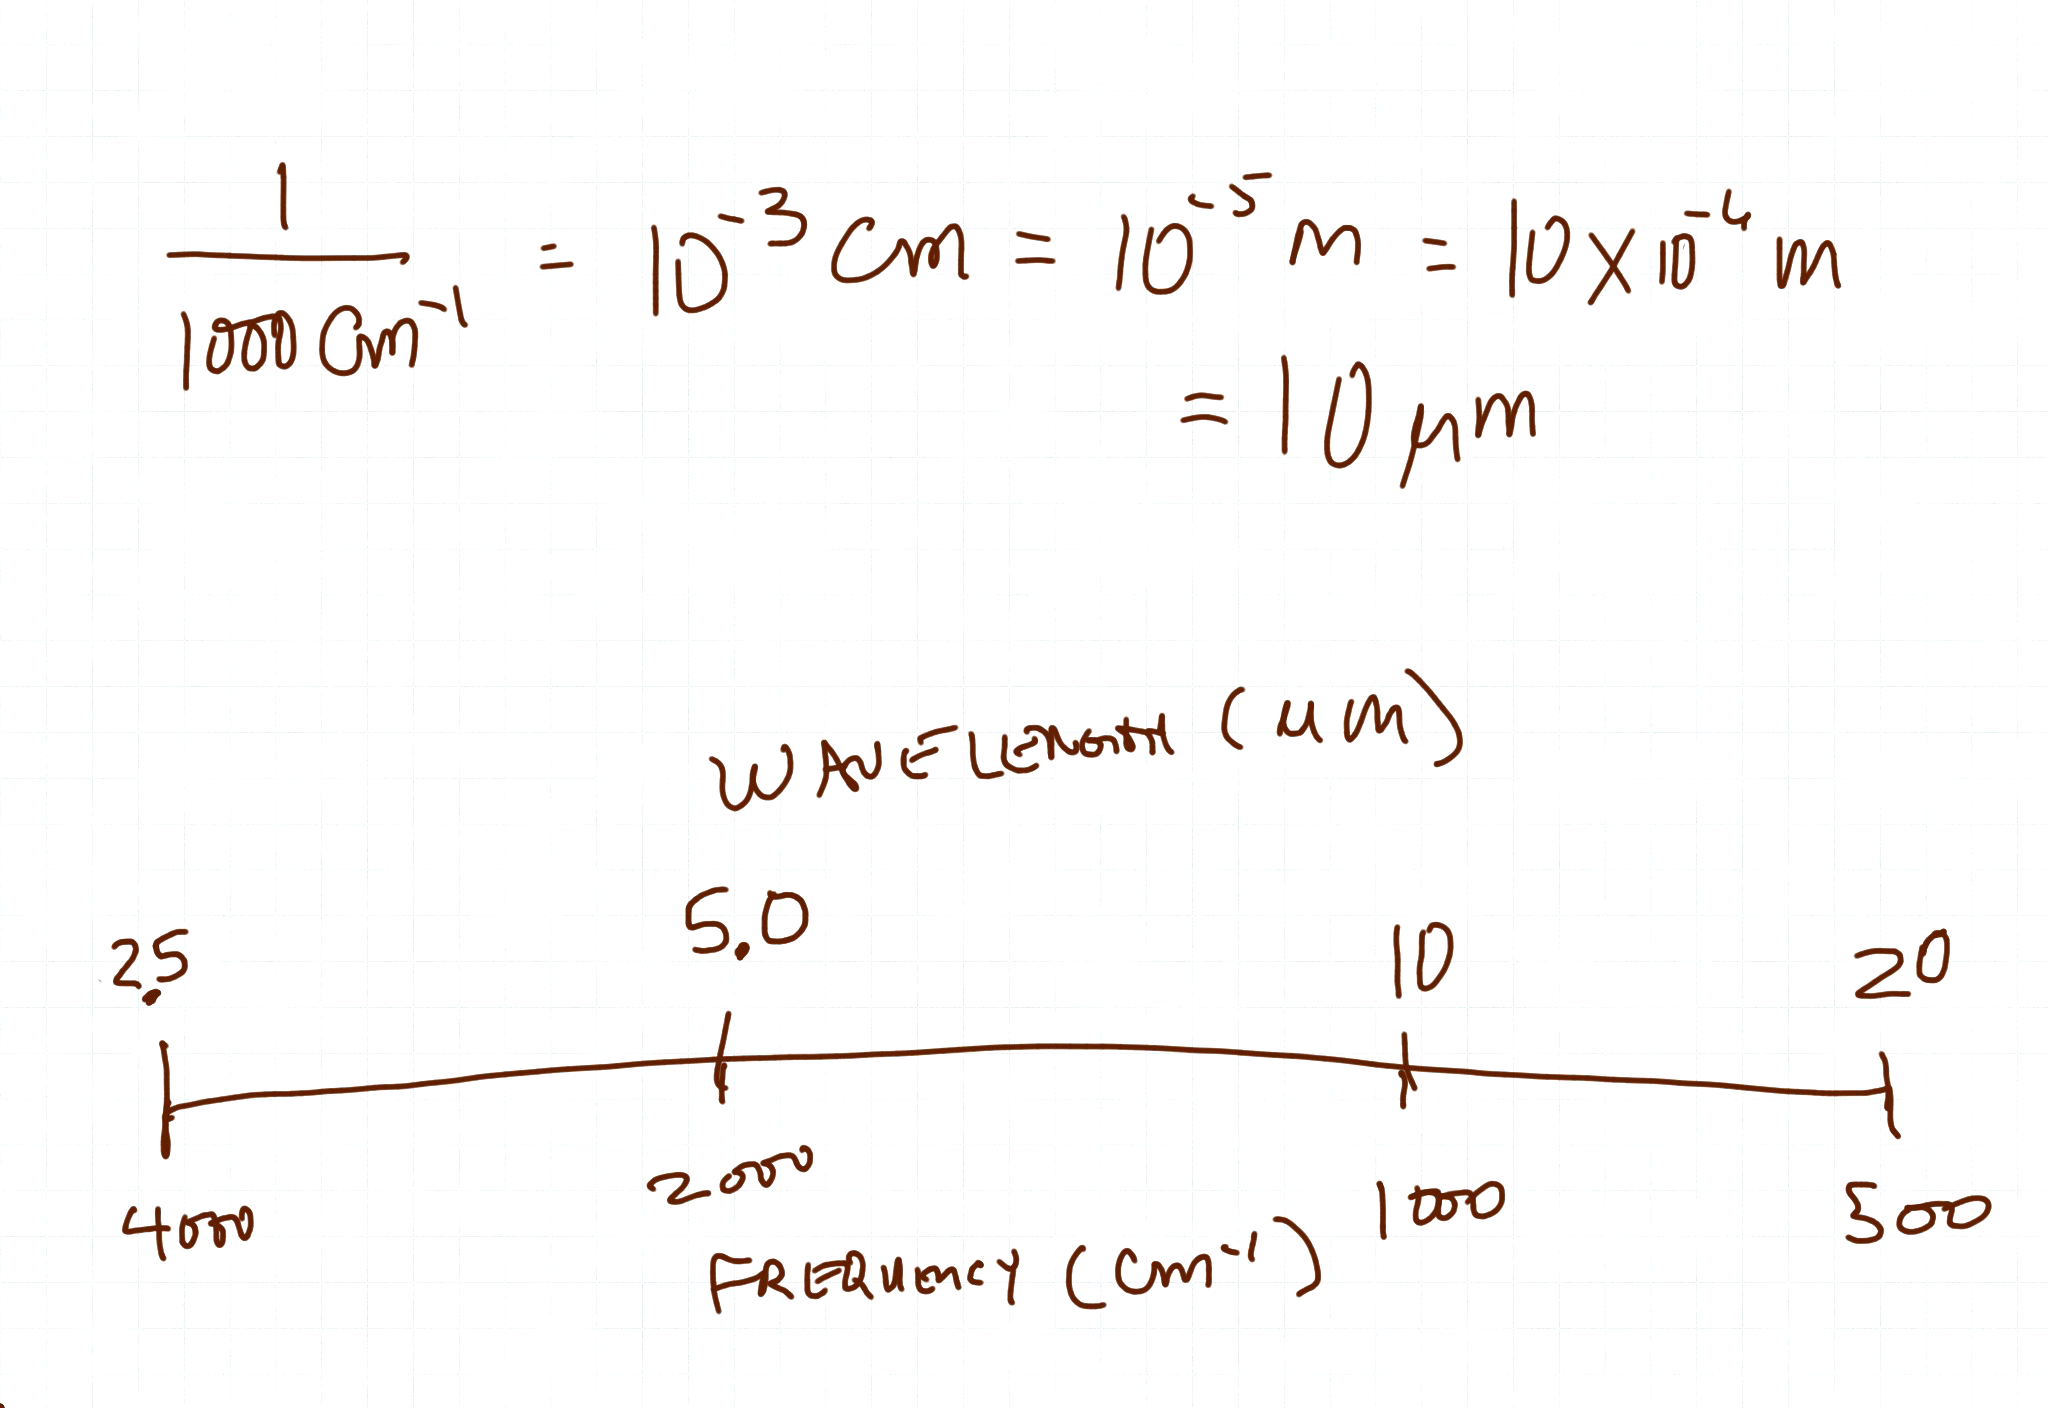 1 / 1000 Cm⁻¹ = 10⁻³ Cm = 10⁻⁵ m = 10 x 10⁻⁴ m
= 10 μm
WAVELENGTH (μm)
2.5 5.0 10 20
4000 2000 1000 500
FREQUENCY (Cm⁻¹)